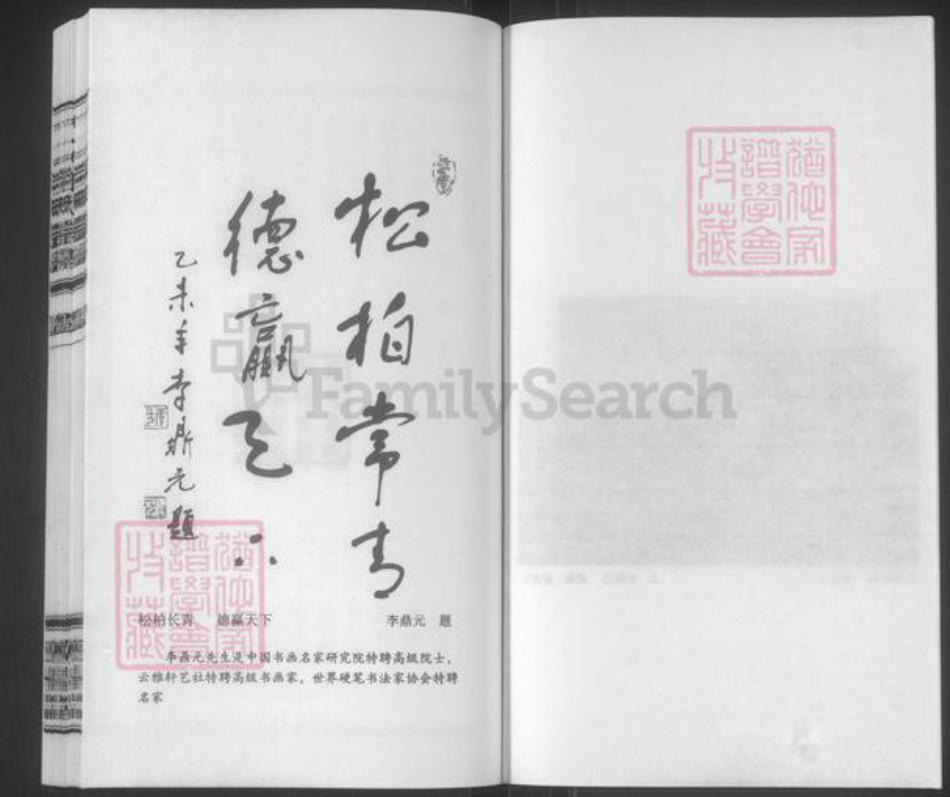 松柏常青
德赢天下
乙未年李鼎元题
松柏长青 德赢天下 李鼎元 题
李鼎元先生是中国书画名家研究院特聘高级院士，
云雅轩艺社特聘高级书画家，世界硬笔书法家协会特聘
名家
猶他家
譜學會
收藏
猶他家
譜學會
收藏
FamilySearch